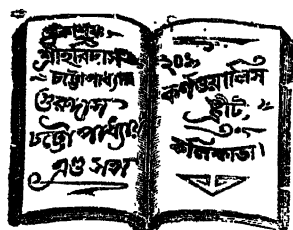 প্রকাশক
শ্রীহরিদাস
চট্টোপাধ্যায়
গুরুদাস
চট্টোপাধ্যায়
এণ্ড সন্স
২০৩৷৷
কর্ণওয়ালিস
ষ্ট্রীট,
কলিকাতা।